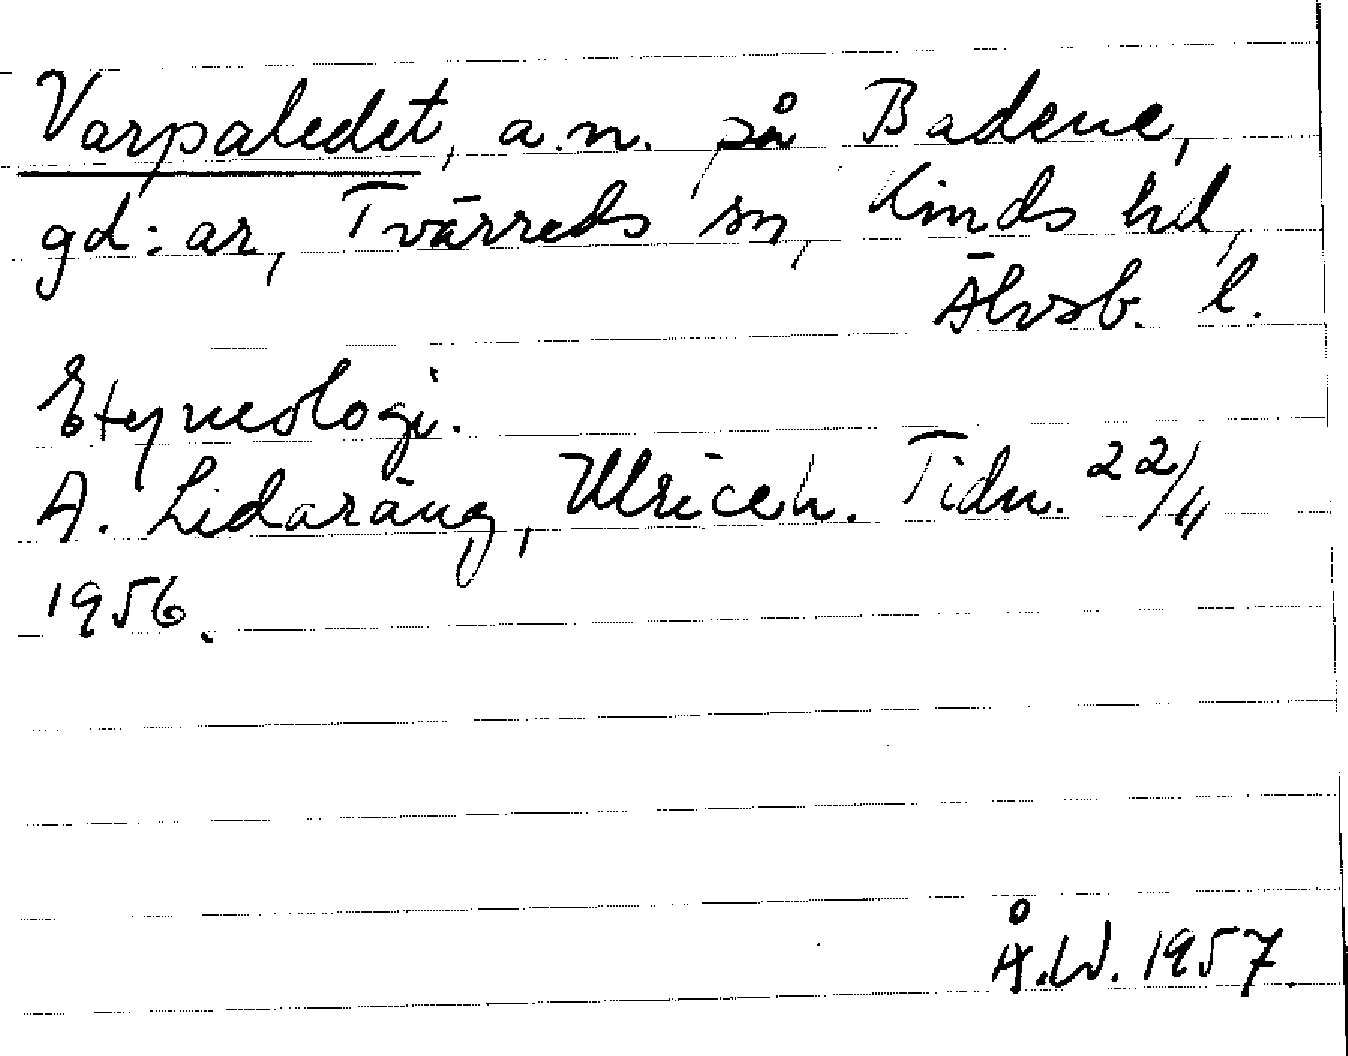 Varpaledet, a.n. på Badene,
gd:ar, Tvärreds sn, Kinds hd,
Älvsb. l.
Etymologi.
A. Lidaräng, Ulriceh. Tidn. 22/4
1956.
Å.W. 1957.